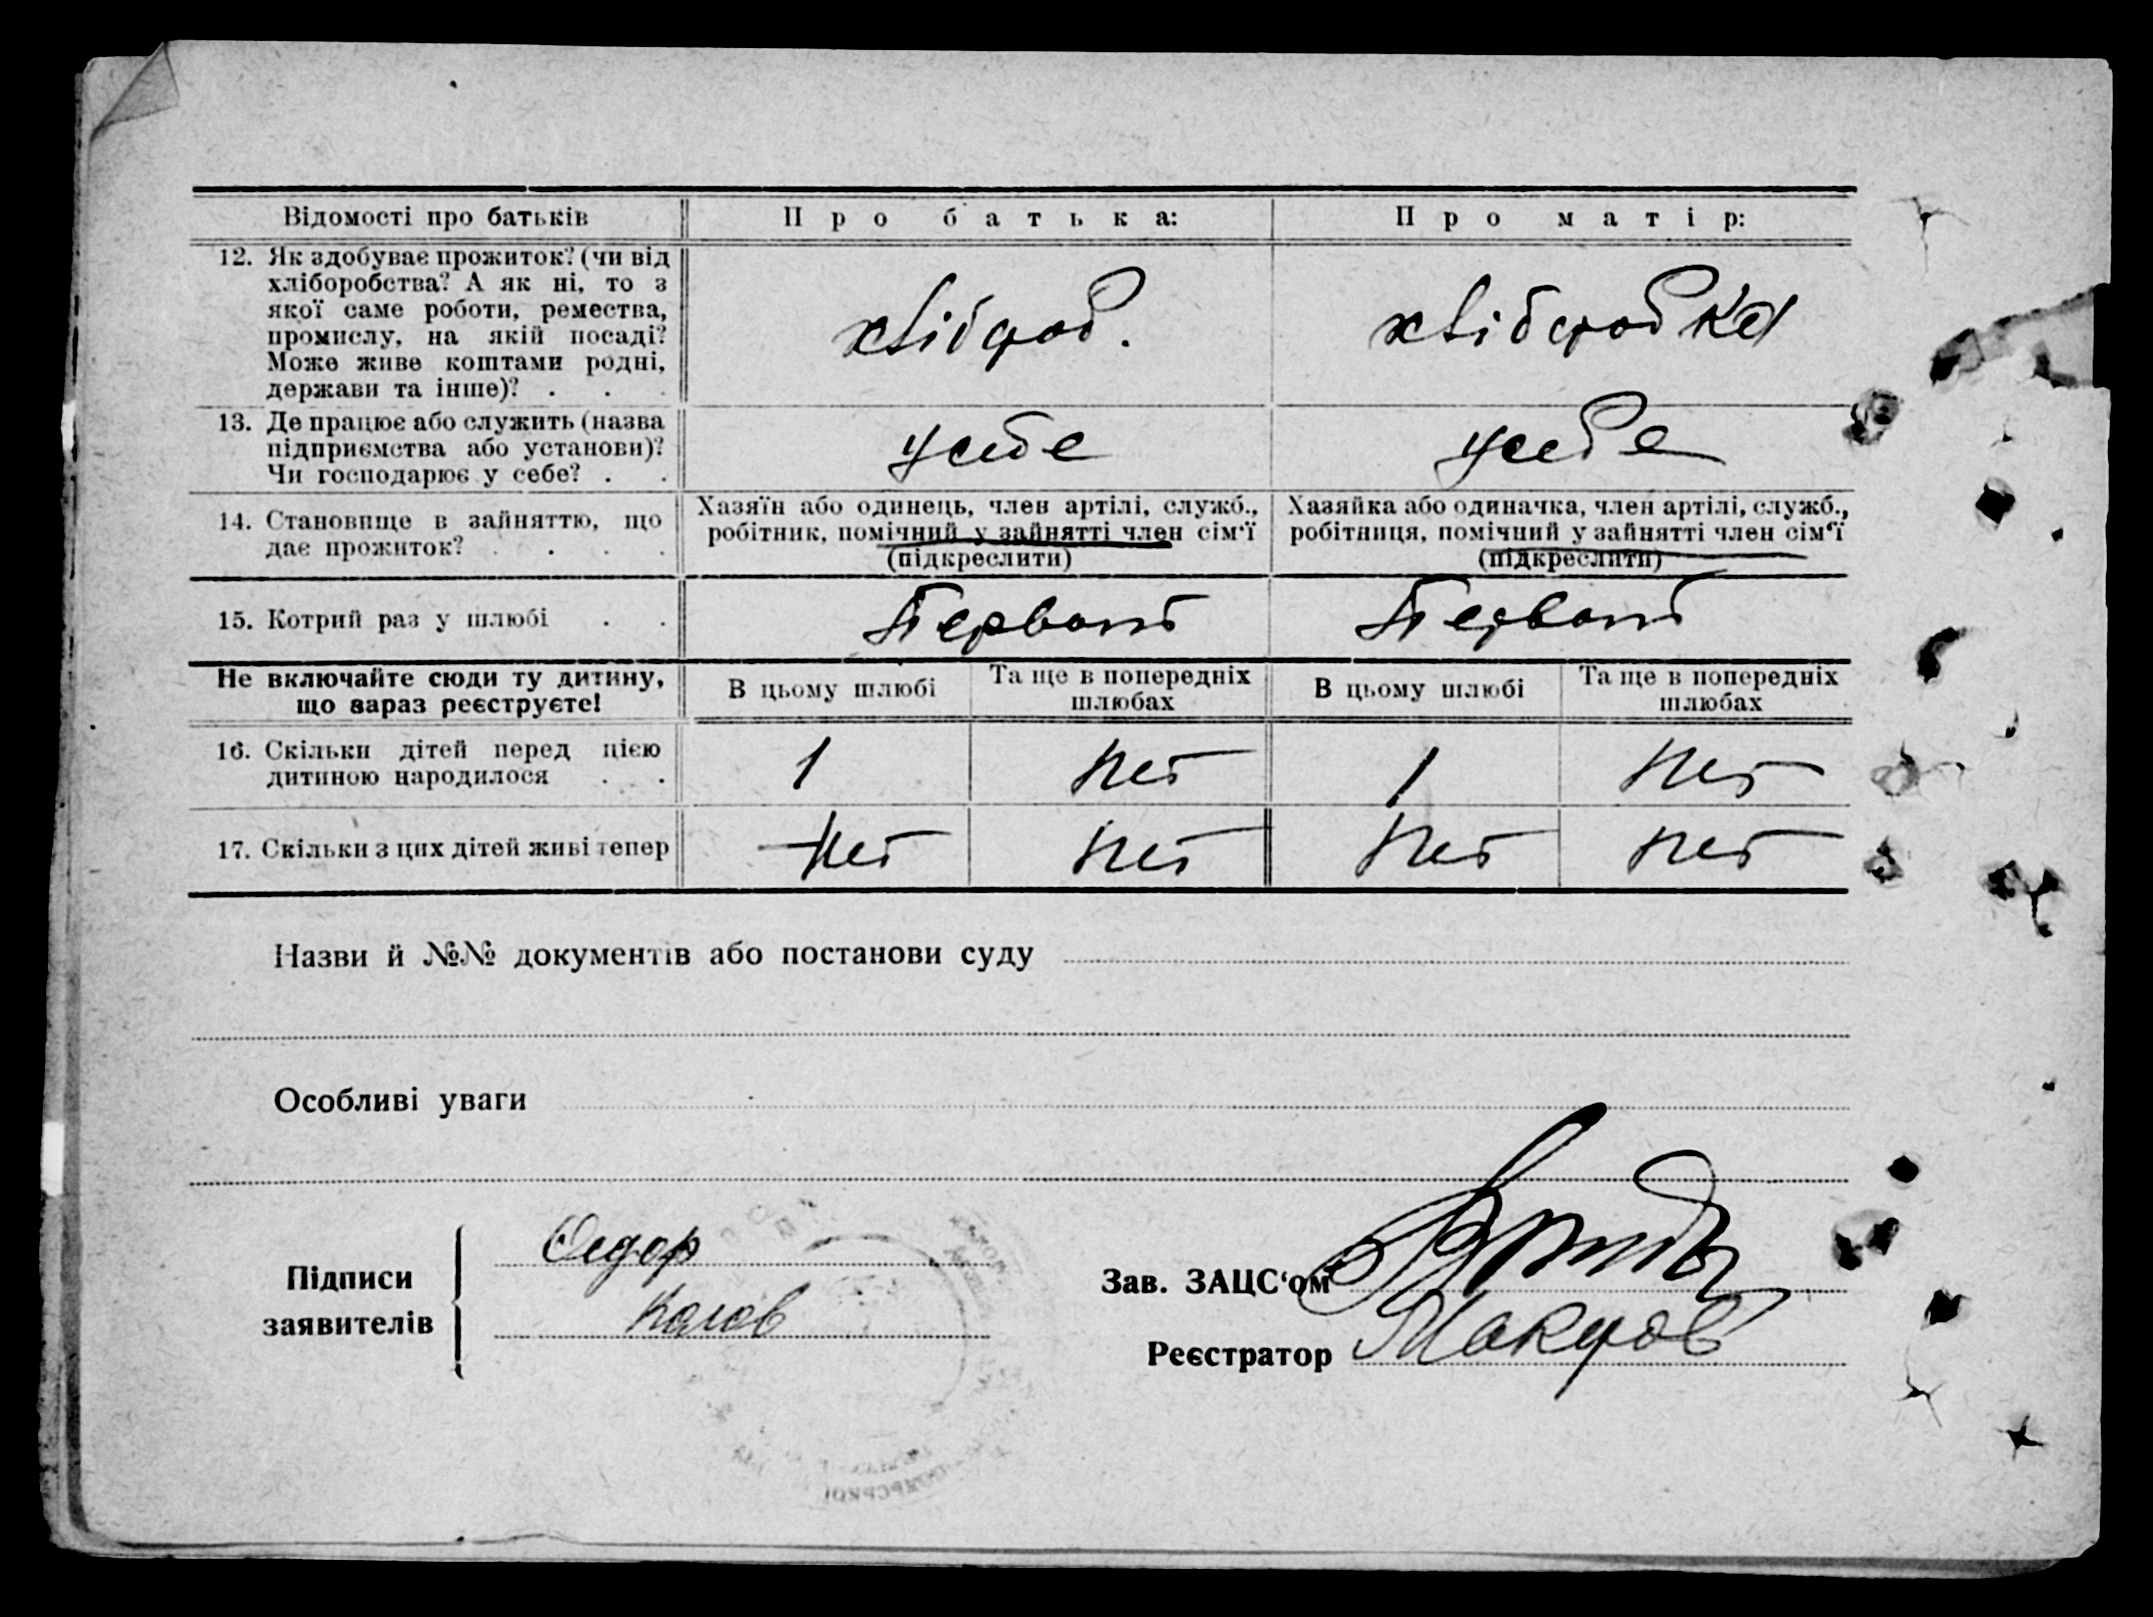 Відомості про батьків
Про батька:
Про матір:
12. Як здобуває прожиток? (чи від
хліборобства? А як ні, то з
якої саме роботи, ремества,
промислу, на якій посаді?
Може живе коштами родні,
держави та інше)? . . .
хлібороб.
хліборобка
13. Де працює або служить (назва
підприємства або установи)?
Чи господарює у себе? . .
у себе
у себе
14. Становище в зайняттю, що
дає прожиток? . . . .
Хазяїн або одинець, член артілі, служб.,
робітник, помічний у зайнятті член сім‘ї
(підкреслити)
Хазяйка або одиначка, член артілі, служб.,
робітниця, помічний у зайнятті член сім‘ї
(підкреслити)
15. Котрий раз у шлюбі . .
Первом
Первом
Не включайте сюди ту дитину,
що зараз реєструєте!
В цьому шлюбі
Та ще в попередніх
шлюбах
В цьому шлюбі
Та ще в попередніх
шлюбах
16. Скільки дітей перед цією
дитиною народилося . .
1
Нет
1
Нет
17. Скільки з цих дітей живі тепер
Нет
Нет
Нет
Нет
Назви й №№ документів або постанови суду
Особливі уваги
Підписи
заявителів
Федор
Зав. ЗАЦС‘ом
Реєстратор